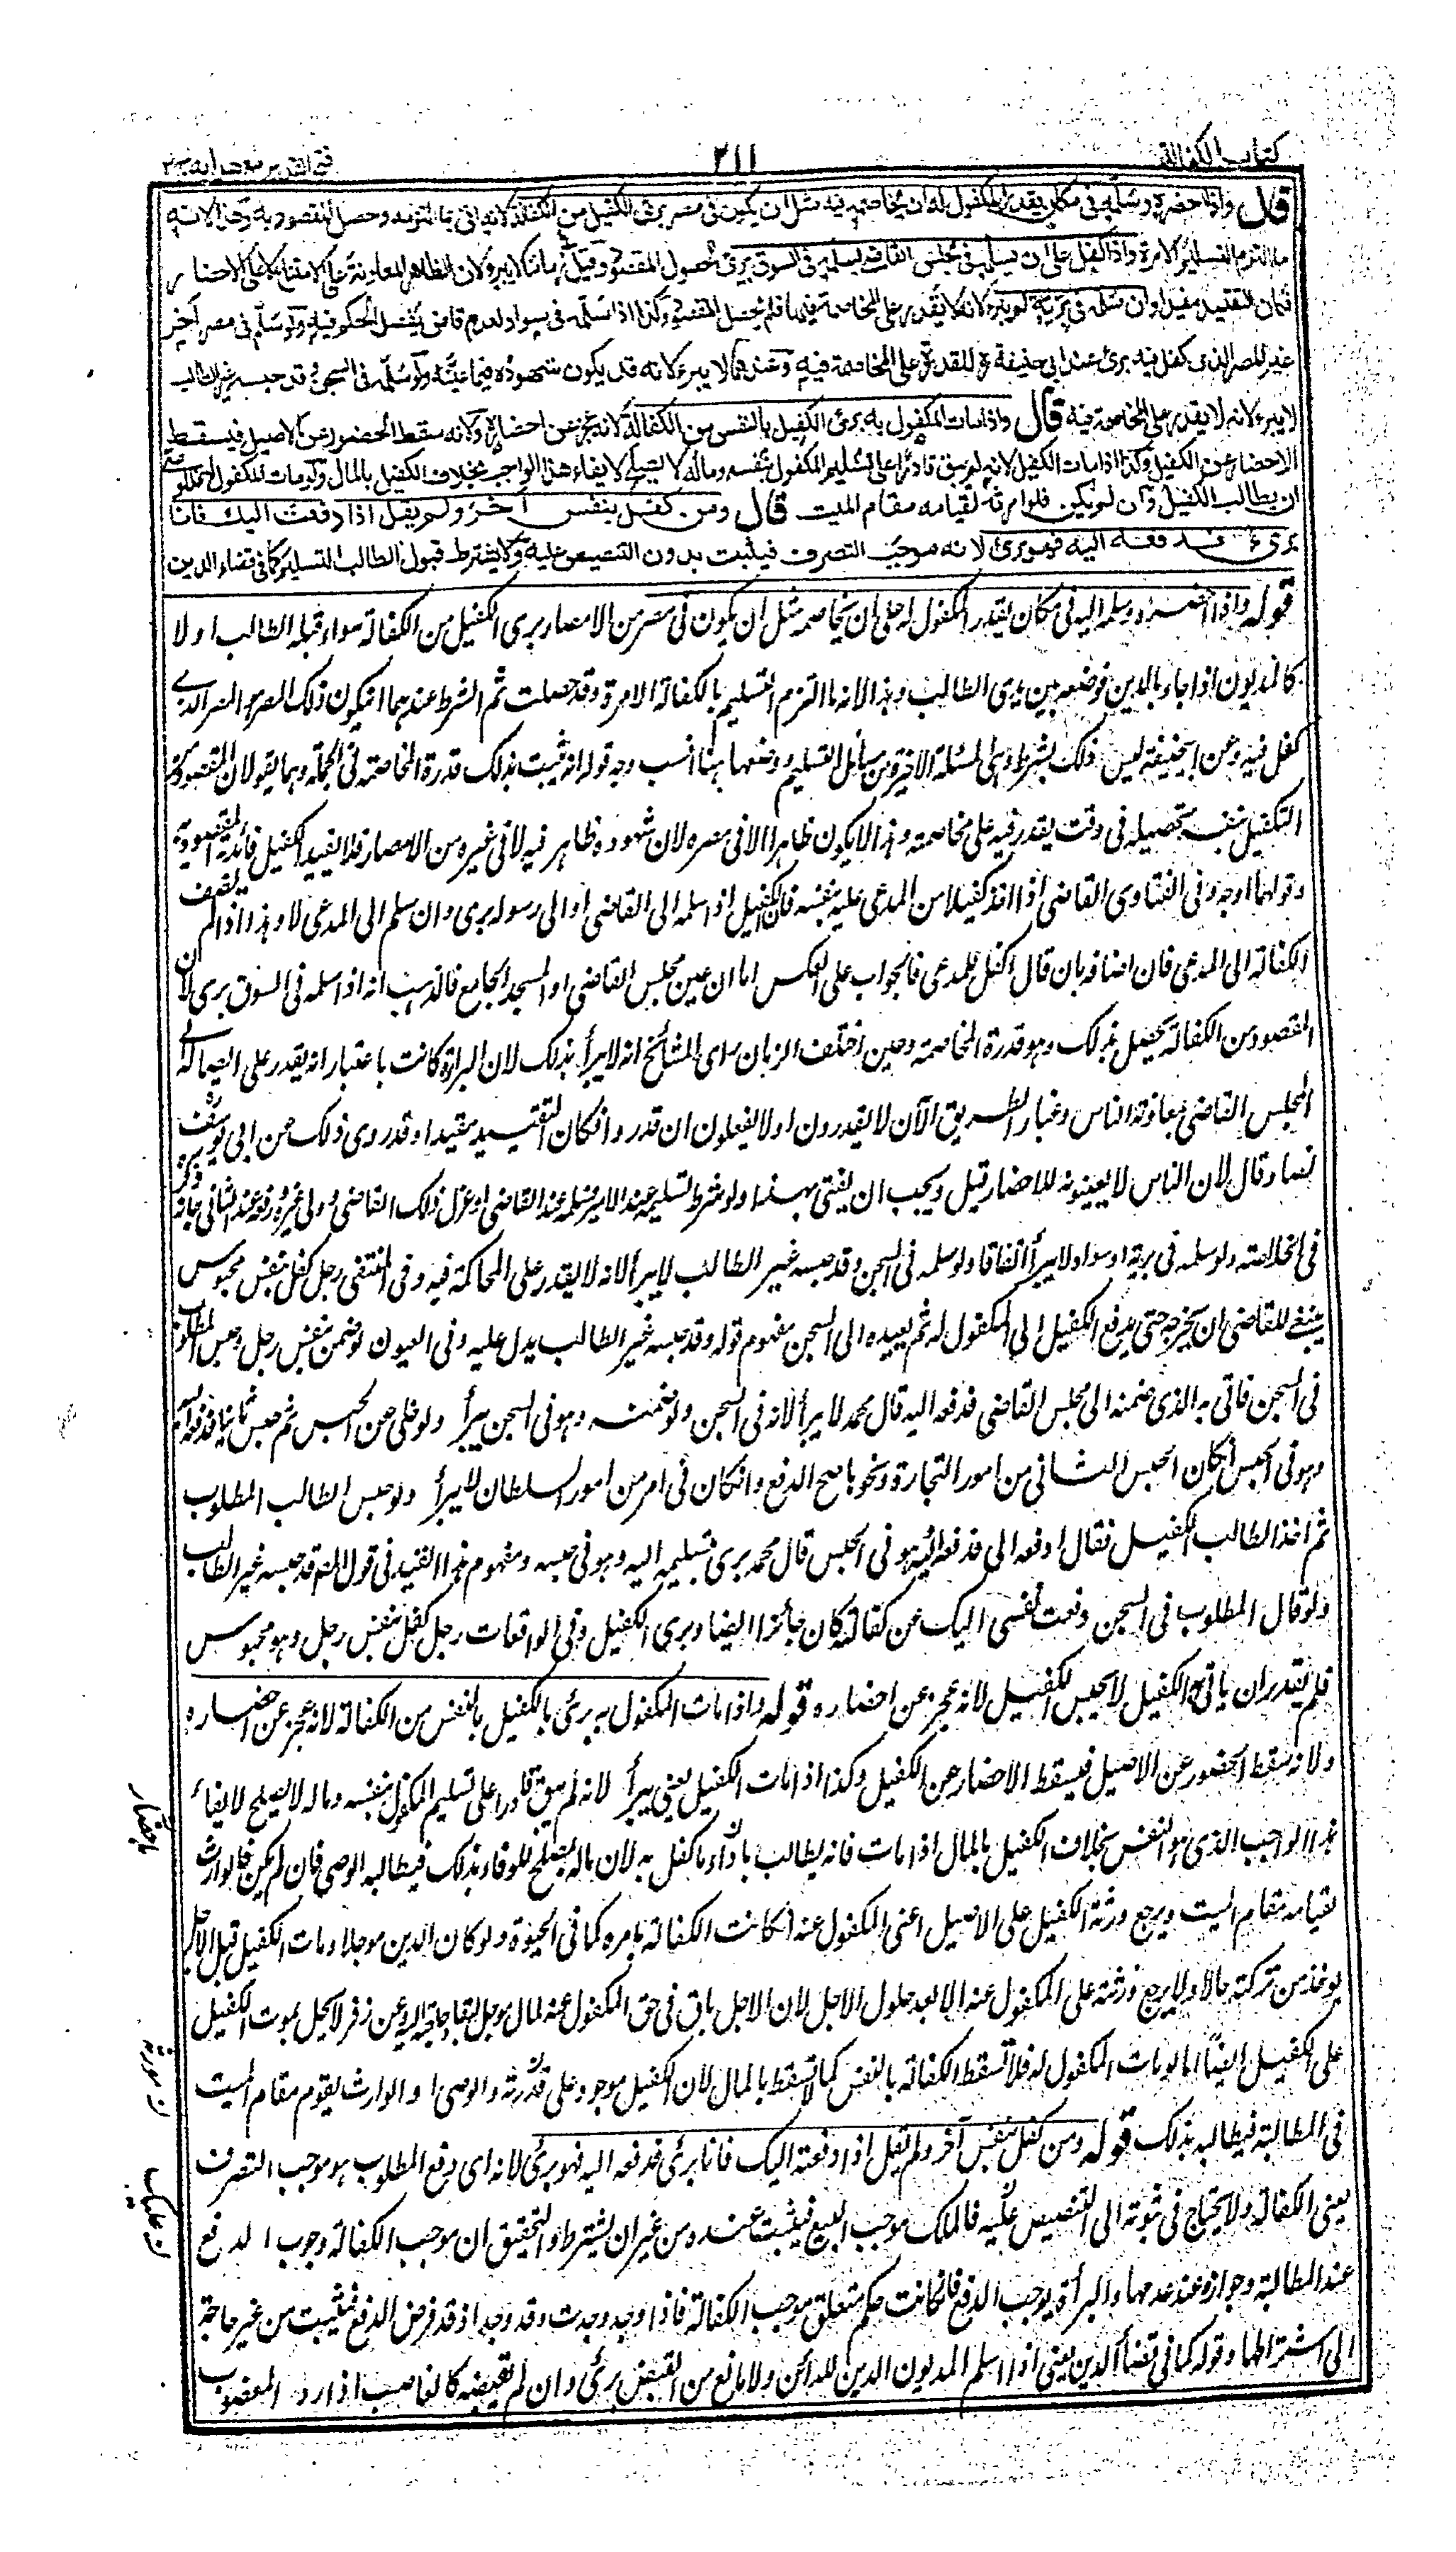 كتاب الكفالة
٢١١
فتح القدير مع هدايه ج٣
قال واذا احضره وسلمه فى مكان يقدر المكفول له ان يخاصمه فيه مثل ان يكون فى مصر برئ الكفيل من الكفالة لانه اتى بما التزمه وحصل المقصود به وهذا لانه
ما التزم التسليم الا مرة واذا كفل على ان يسلمه فى مجلس القاضى فسلمه فى السوق برئ لحصول المقصود وقيل فى زماننا لا يبرء لان الظاهر المعاونة على الامتناع لا على الاحضار
فكان التقييد مفيدا وان سلمه فى برية لم يبرء لانه لا يقدر على المخاصمة فيها فلم يحصل المقصود وكذا اذا سلمه فى سواد لعدم قاض يفصل الحكم فيه ولو سلم فى مصر آخر
غير المصر الذى كفل فيه برئ عند ابى حنيفة للقدرة على المخاصمة فيه وعندهما لا يبرء لانه قد يكون شهوده فيما عينه ولو سلمه فى السجن وقد حبسه غير الطالب
لا يبرء لانه لا يقدر على المخاصمة فيه قال واذا مات المكفول به برئ الكفيل بالنفس من الكفالة لانه عجز عن احضاره ولانه سقط الحضور عن الاصيل فيسقط
الاحضار عن الكفيل وكذا اذا مات الكفيل لانه لم يبق قادرا على تسليم المكفول بنفسه وماله لا يصلح لايفاء هذا الواجب بخلاف الكفيل بالمال ولو مات المكفول له فللوصى
ان يطالب الكفيل وان لم يكن فلوارثه لقيامه مقام الميت قال ومن كفل بنفس آخر ولم يقل اذا دفعت اليك فانا
برئ فدفعه اليه فهو برئ لانه موجب التصرف فيثبت بدون التنصيص عليه ولا يشترط قبول الطالب التسليم كما فى قضاء الدين
قوله واذا احضره وسلمه اليه فى مكان يقدر المكفول له على ان يخاصمه مثل ان يكون فى مصر من الامصار برى الكفيل من الكفالة سواء قبله الطالب او لا
كالمديون اذا جاء بالدين فوضعه بين يدى الطالب وهذا لانه ما التزم التسليم بالكفالة الا مرة وقد حصلت ثم الشرط عندهما ان يكون ذلك المصر هو المصر الذى
كفل فيه وعن ابيحنيفة ليس ذلك بشرط وهى المسئلة الاخيرة من مسائل التسليم ووضعها هنا انسب وجه قوله انه يثبت بذلك قدرة المخاصمة فى الجملة وهما يقولان المقصود من
التكفيل بنفسه تحصيله فى وقت يقدر فيه على مخاصمته وهذا لا يكون ظاهرا الا فى مصره لان شهوده ظاهر فيه لا فى غيره من الامصار فلا يفيد التكفيل فائدته المقصودة
وقولهما اوجه وفى الفتاوى القاضى اذا اخذ كفيلا من المدعى عليه بنفسه فان الكفيل اذا سلمه الى القاضى او الى رسوله برى وان سلم الى المدعى لا وهذا اذا لم يضف
الكفالة الى المدعى فان اضافه بان قال اكفل للمدعى فالجواب على العكس اما ان عين مجلس القاضى او المسجد الجامع فالمذهب انه اذا سلمه فى السوق برى لان
المقصود من الكفالة يحصل بذلك وهو قدرة المخاصمة وحين اختلف الزمان راى المشائخ انه لا يبرأ بذلك لان البراءة كانت باعتبار انه يقدر على ايصاله الى
المجلس القاضى بمعاونة الناس وفى الطريق الآن لا يقدرون او لا يفعلون ان قدروا فكان التقييد مفيدا وقد روى ذلك عن ابى يوسف
نصا وقال لان الناس لا يعينونه للاحضار قيل ويجب ان يفتى بهذا ولو شرط تسليمه عند الامير فسلمه عند القاضى او عزل ذلك القاضى وولى غيره فدفعه عند الثانى جاز ذكره
فى الخلاصة ولو سلمه فى برية او سواد لا يبرأ اتفاقا ولو سلمه فى السجن وقد حبسه غير الطالب لا يبرأ لانه لا يقدر على المحاكمة فيه وفى المنتقى رجل كفل بنفس محبوس
ينبغى للقاضى ان يخرجه حتى يدفع الكفيل الى المكفول له ثم يعيده الى السجن مفهوم قوله وقد حبسه غير الطالب يدل عليه وفى العيون لو ضمن بنفس رجل وحبس المطلوب
فى السجن فاتى به الذى ضمنه الى مجلس القاضى فدفعه اليه قال محمد لا يبرأ لانه فى السجن ولو ضمنه وهو فى السجن يبرأ ولو خلى عن الحبس ثم حبس ثانيا فدفعه اليه
وهو فى الحبس ان كان الحبس الثانى من امور التجارة ونحوها صح الدفع وان كان فى امر من امور السلطان لا يبرأ ولو حبس الطالب المطلوب
ثم اخذ الطالب الكفيل فقال ادفعه الى فدفعه اليه وهو فى الحبس قال محمد برى بتسليمه اليه وهو فى حبسه ومفهوم هذا القيد فى قول المص قد حبسه غير الطالب
ولو قال المطلوب فى السجن دفعت نفسى اليك عن كفالة كان جائزا ايضا وبرى الكفيل وفى الواقعات رجل كفل بنفس رجل وهو محبوس
فلم يقدر ان ياتى به الكفيل لا يحبس الكفيل لانه عجز عن احضاره قوله واذا مات المكفول به برئ الكفيل بالنفس من الكفالة لانه عجز عن احضاره
ولانه سقط الحضور عن الاصيل فيسقط الاحضار عن الكفيل وكذا اذا مات الكفيل يعنى يبرأ لانه لم يبق قادرا على تسليم المكفول بنفسه وماله لا يصلح لايفاء
هذا الواجب الذى هو النفس بخلاف الكفيل بالمال اذا مات فانه يطالب باداء ما كفل به لان ماله يصلح للوفاء بذلك فيطالبه الوصى فان لم يكن فالوارث
لقيامه مقام الميت ويرجع ورثة الكفيل على الاصيل اعنى المكفول عنه ان كانت الكفالة بامره كما فى الحيوة ولو كان الدين موجلا ومات الكفيل قبل الاجل
يوخذ من تركته حالا ولا يرجع ورثته على المكفول عنه الا بعد حلول الاجل لان الاجل باق فى حق المكفول عنه وعن زفر لا يحل بموت الكفيل
على الكفيل ايضا اما لو مات المكفول له فلا تسقط الكفالة بالنفس كما لا تسقط بالمال لان الكفيل موجود على قدرته والوصى او الوارث يقوم مقام الميت
فى المطالبة فيطالبه بذلك قوله ومن كفل بنفس آخر ولم يقل اذا دفعته اليك فانا برئ فدفعه اليه فهو برئ لانه اى دفع المطلوب هو موجب التصرف
يعنى الكفالة ولا يحتاج فى ثبوته الى التنصيص عليه فالملك موجب البيع فيثبت عنده من غير ان يشترط والتحقيق ان موجب الكفالة وجوب الدفع
عند المطالبة وجوازه عند عدمها والبراءة بوجب الدفع فكانت حكم متعلق موجب الكفالة فاذا وجد وجدت وقد وجد اذ قد فرض الدفع فيثبت من غير حاجة
الى اشتراطها وقوله كما فى قضاء الدين يعنى اذا سلم المديون الدين للدائن ولا مانع من القبض برئ وان لم يقبضه كالغاصب اذا رد المغصوب
احضار